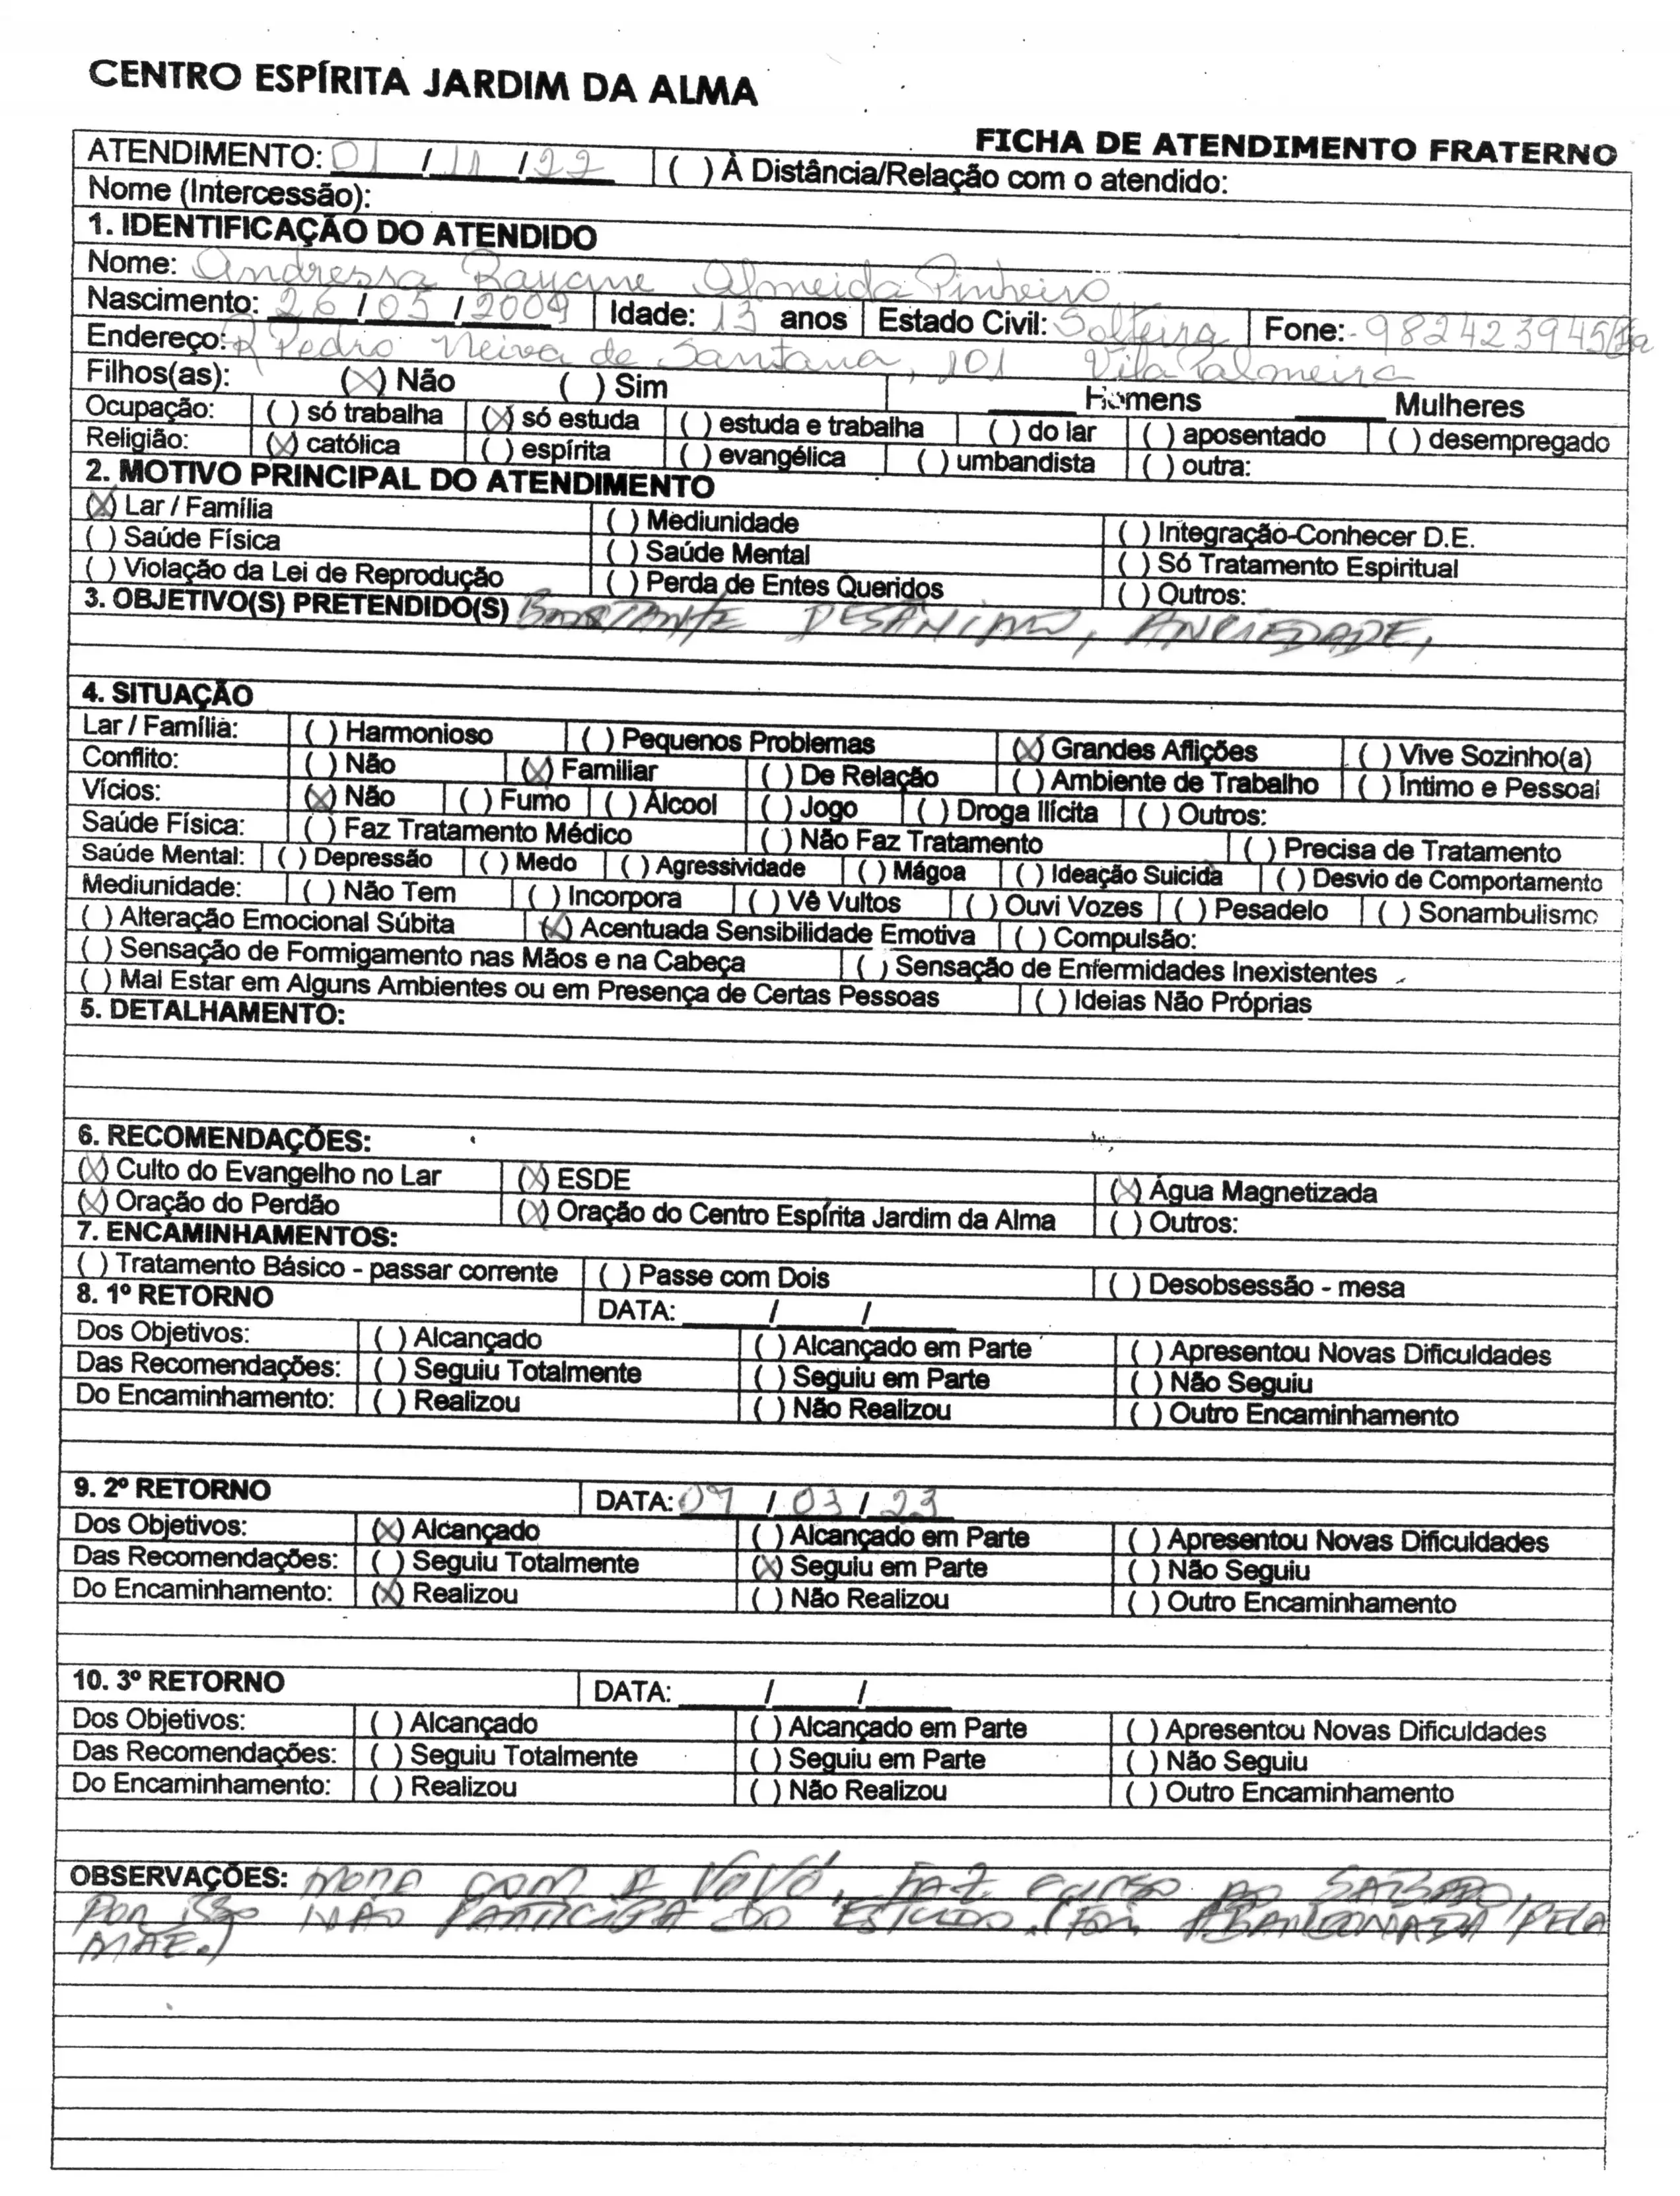 CENTRO ESPÍRITA JARDIM DA ALMA
FICHA DE ATENDIMENTO FRATERNO
ATENDIMENTO: 01 / 11 / 22 ( ) À Distância/Relação com o atendido:
Nome (Intercessão):
1. IDENTIFICAÇÃO DO ATENDIDO
Nome: Andressa Rayane Almeida Pinheiro
Nascimento: 26 / 05 / 2009 Idade: 13 anos Estado Civil: Solteira Fone: 982423945
Endereço: R Pedro Neiva de Santana, 101 Vila Palmeira
Filhos(as): (X) Não ( ) Sim ____ Homens ____ Mulheres
Ocupação: ( ) só trabalha (X) só estuda ( ) estuda e trabalha ( ) do lar ( ) aposentado ( ) desempregado
Religião: (X) católica ( ) espírita ( ) evangélica ( ) umbandista ( ) outra:
2. MOTIVO PRINCIPAL DO ATENDIMENTO
(X) Lar / Família ( ) Mediunidade ( ) Integração-Conhecer D.E.
( ) Saúde Física ( ) Saúde Mental ( ) Só Tratamento Espiritual
( ) Violação da Lei de Reprodução ( ) Perda de Entes Queridos ( ) Outros:
3. OBJETIVO(S) PRETENDIDO(S) BASTANTE DESÂNIMO, ANSIEDADE,
4. SITUAÇÃO
Lar / Família: ( ) Harmonioso ( ) Pequenos Problemas (X) Grandes Aflições ( ) Vive Sozinho(a)
Conflito: ( ) Não (X) Familiar ( ) De Relação ( ) Ambiente de Trabalho ( ) Íntimo e Pessoal
Vícios: (X) Não ( ) Fumo ( ) Álcool ( ) Jogo ( ) Droga Ilícita ( ) Outros:
Saúde Física: ( ) Faz Tratamento Médico ( ) Não Faz Tratamento ( ) Precisa de Tratamento
Saúde Mental: ( ) Depressão ( ) Medo ( ) Agressividade ( ) Mágoa ( ) Ideação Suicida ( ) Desvio de Comportamento
Mediunidade: ( ) Não Tem ( ) Incorpora ( ) Vê Vultos ( ) Ouvi Vozes ( ) Pesadelo ( ) Sonambulismo
( ) Alteração Emocional Súbita (X) Acentuada Sensibilidade Emotiva ( ) Compulsão:
( ) Sensação de Formigamento nas Mãos e na Cabeça ( ) Sensação de Enfermidades Inexistentes
( ) Mal Estar em Alguns Ambientes ou em Presença de Certas Pessoas ( ) Ideias Não Próprias
5. DETALHAMENTO:
6. RECOMENDAÇÕES:
(X) Culto do Evangelho no Lar (X) ESDE (X) Água Magnetizada
(X) Oração do Perdão (X) Oração do Centro Espírita Jardim da Alma ( ) Outros:
7. ENCAMINHAMENTOS:
( ) Tratamento Básico - passar corrente ( ) Passe com Dois ( ) Desobsessão - mesa
8. 1º RETORNO DATA: ____/____/____
Dos Objetivos: ( ) Alcançado ( ) Alcançado em Parte ( ) Apresentou Novas Dificuldades
Das Recomendações: ( ) Seguiu Totalmente ( ) Seguiu em Parte ( ) Não Seguiu
Do Encaminhamento: ( ) Realizou ( ) Não Realizou ( ) Outro Encaminhamento
9. 2º RETORNO DATA: 07 / 03 / 23
Dos Objetivos: (X) Alcançado ( ) Alcançado em Parte ( ) Apresentou Novas Dificuldades
Das Recomendações: ( ) Seguiu Totalmente (X) Seguiu em Parte ( ) Não Seguiu
Do Encaminhamento: (X) Realizou ( ) Não Realizou ( ) Outro Encaminhamento
10. 3º RETORNO DATA: ____/____/____
Dos Objetivos: ( ) Alcançado ( ) Alcançado em Parte ( ) Apresentou Novas Dificuldades
Das Recomendações: ( ) Seguiu Totalmente ( ) Seguiu em Parte ( ) Não Seguiu
Do Encaminhamento: ( ) Realizou ( ) Não Realizou ( ) Outro Encaminhamento
OBSERVAÇÕES: MORA COM A VOVÓ, FAZ CURSO AO SÁBADO,
POR ISSO NÃO PARTICIPA DO ESTUDO. (FOI ABANDONADA PELA
MÃE.)